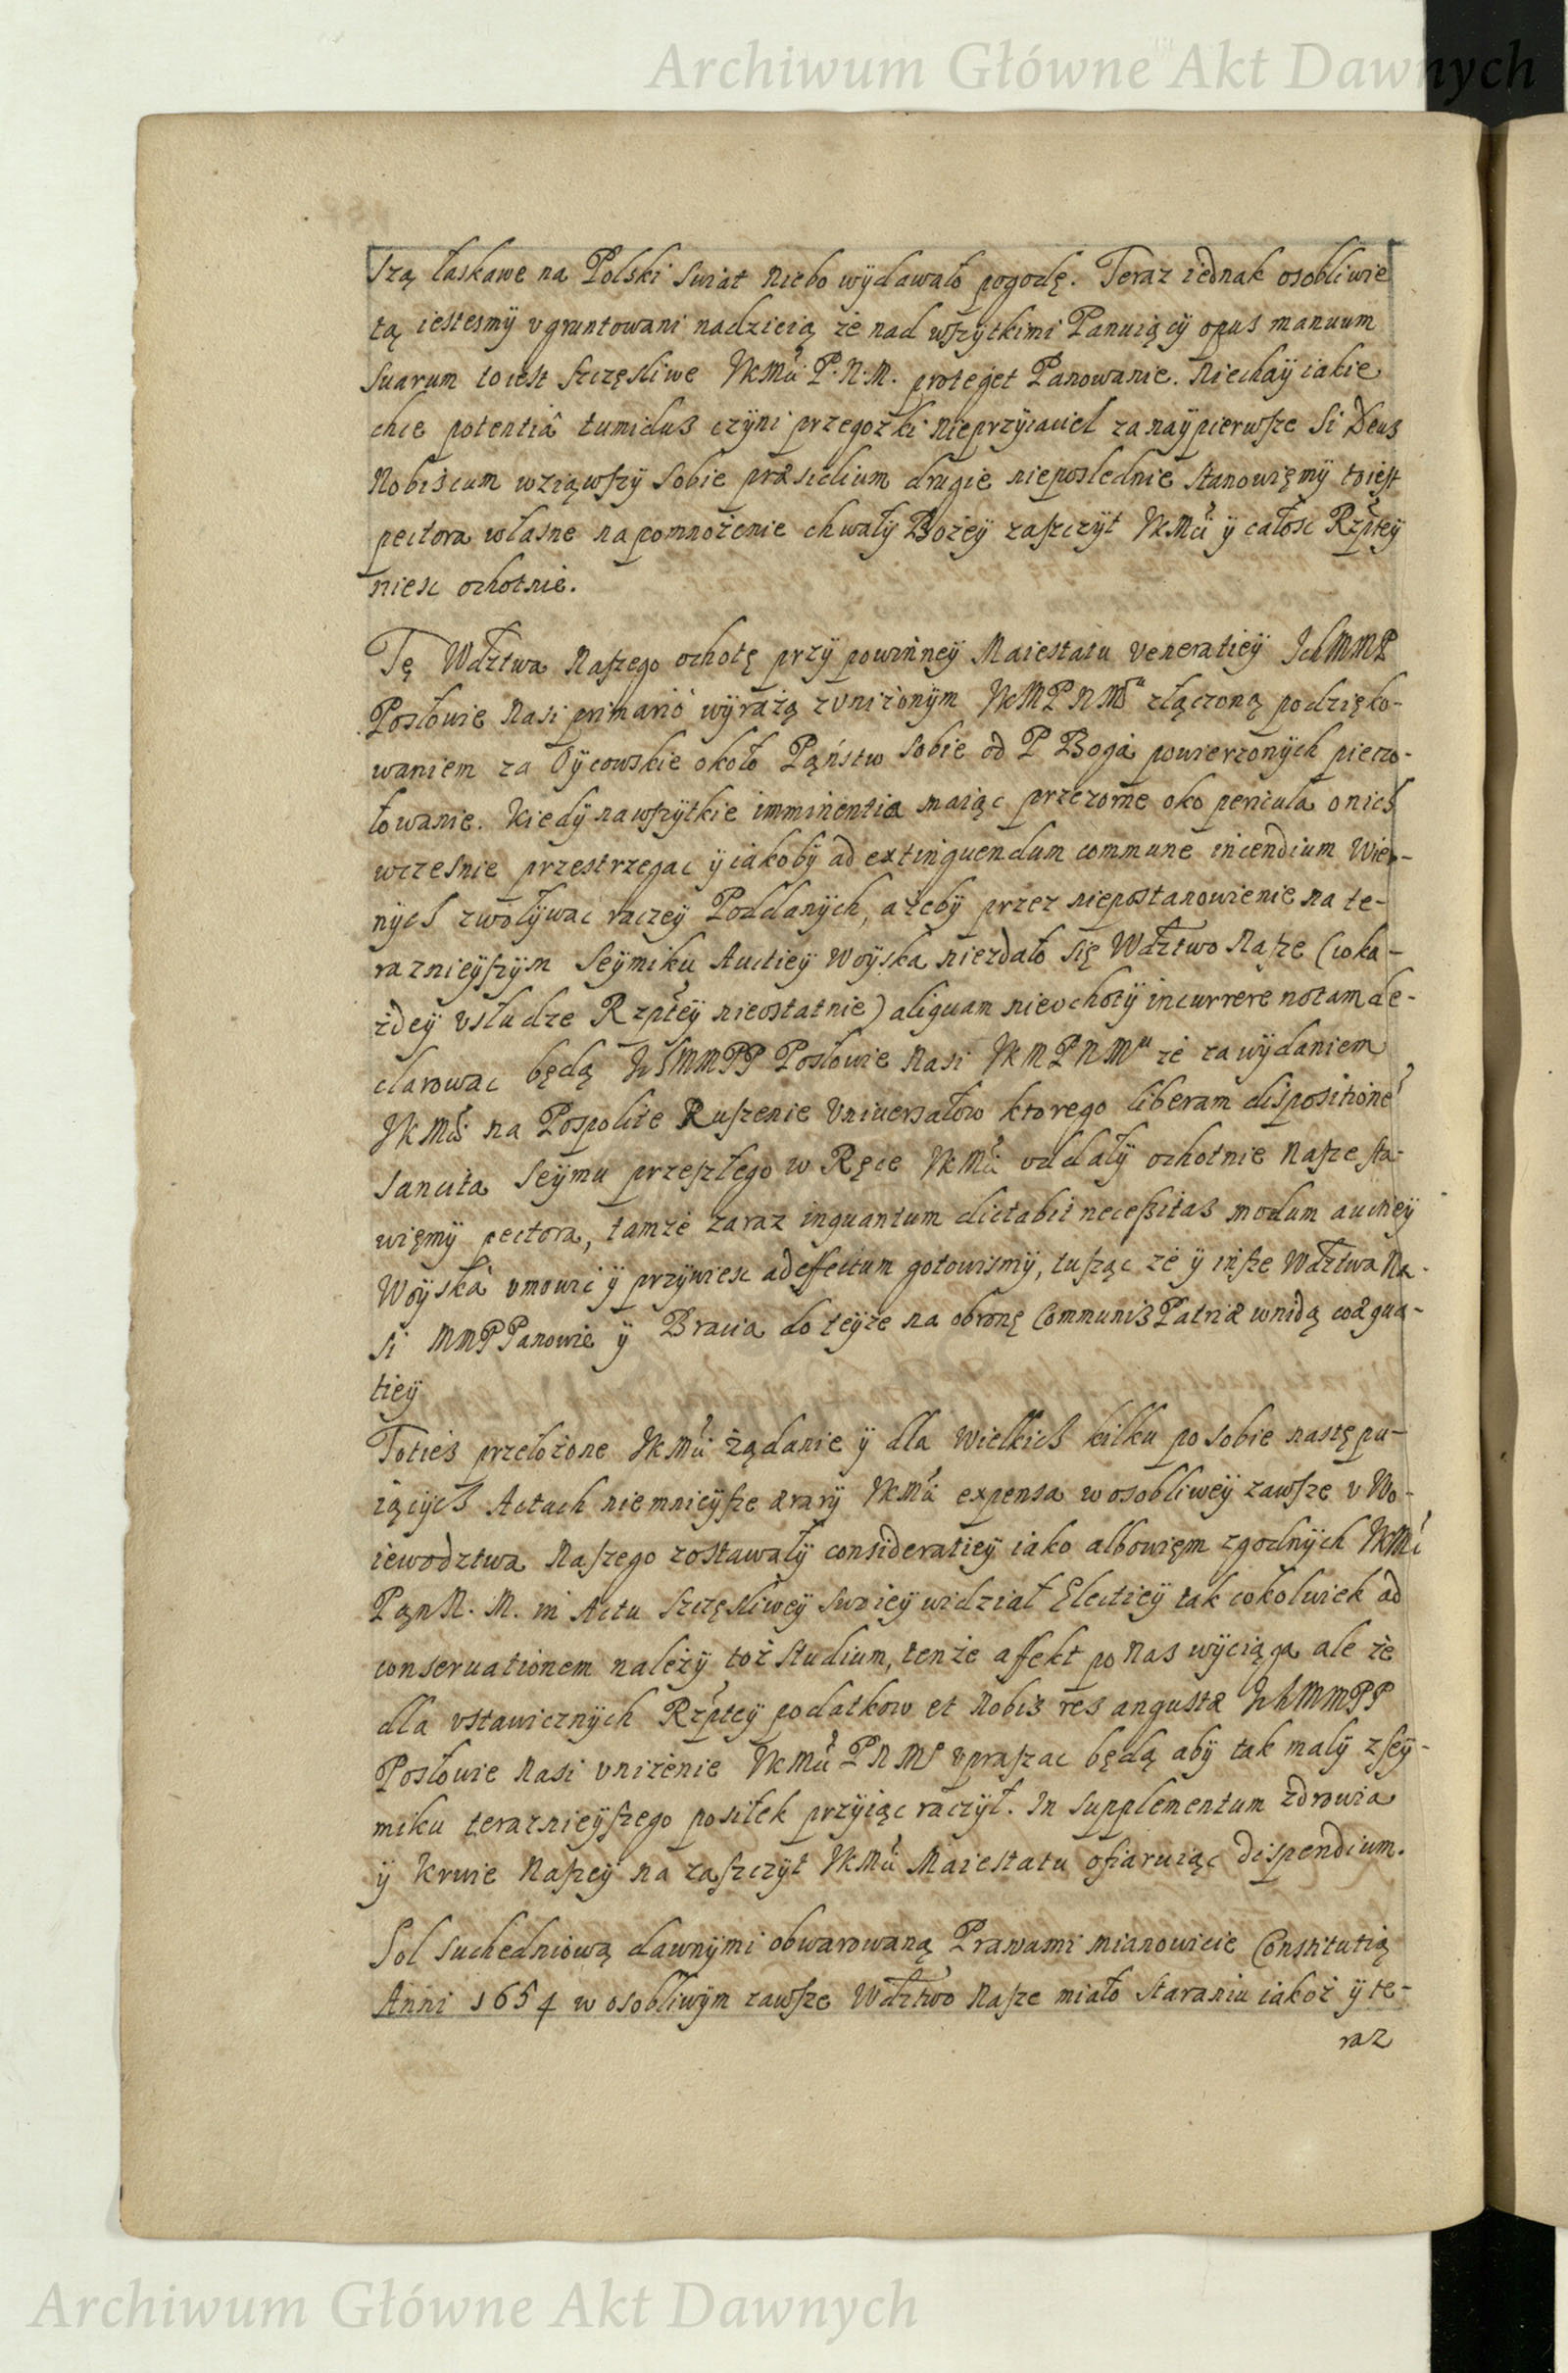 Archiwum Główne Akt Dawnych
szą łaskawe na Polski Swiat Niebo wÿdawało pogodę. Teraz iednak osobliwie
tą iestesmÿ vgruntowani nadzieią że nad wszÿtkimi Panuiącÿ opus manuum
suarum to iest szczęsliwe JKMći P. N. M. proteget Panowanie. Niechaÿ iakie
chce potentiâ tumidus czÿni przegozki Nieprzÿiaciel za naÿpierwsze Si Deus
Nobiscum wziąwszÿ sobie præsidium drugie nieposlednie stanowięmÿ to iest
pectora własne na pomnożenie chwałÿ Bożeÿ zaszczÿt JKMći ÿ całosc Rzpteÿ
niesc ochotnie.
Tę Wdztwa Naszego ochotę przÿ powinneÿ Maiestatu veneratieÿ IchMMP
Posłowie Nasi primario wÿrażą zvniżonÿm JKMPNMu złączoną podzięko-
waniem za Oÿcowskie około Państw sobie od P Boga powierzonÿch pieczo-
łowanie. Kiedÿ na wszÿtkie imminentia maiąc przezorne oko pericula o nich
wczesnie przestrzegac ÿ iakobÿ ad extinguendum commune incendium Wier-
nÿch zwołÿwac raczeÿ Poddanÿch, a żebÿ przez niepostanowienie na te-
raznieÿszÿm Seÿmiku Auctieÿ Woÿska niezdało się Wdztwo Nasze (w ka-
żdeÿ vsłudze Rzpteÿ nieostatnie) aliquam nieochotÿ incurrere notam de-
clarowac będą IchMMPP Posłowie Nasi JKMPNMu że za wÿdaniem
JKMći na Pospolite Ruszenie Vniversałow ktorego liberam dispositione
sancita Seÿmu przeszłego w Ręce JKMći oddałÿ ochotnie Nasze sta-
więmÿ pectora, tamże zaraz inquantum dictabit necessitas modum auctieÿ
Woÿska vmowić ÿ przÿwiesc ad effectum gotowismÿ, tusząc że ÿ insze Wdztwa Na-
si MMPPanowie ÿ Bracia do teÿże na obronę Communis Patriæ wnidą coæqua-
tieÿ
Toties przełożone JKMći żądanie ÿ dla Wielkich kilku po sobie następu-
iącÿch Actach niemnieÿsze ærarÿ JKMći expensa w osobliweÿ zawsze v Wo-
iewodztwa Naszego zostawałÿ consideratieÿ iako albowięm zgodnÿch JKMć
Pan N. M. in Actu szczęsliweÿ swoieÿ widział Electieÿ tak cokolwiek ad
conservationem należÿ toż studium, tenże affekt po Nas wÿciąga ale że
dla vstawicznÿch Rzpteÿ podatkow et Nobis res angustæ IchMMPP
Posłowie Nasi vniżenie JKMći PNM vpraszac będą abÿ tak małÿ z seÿ-
miku teraznieÿszego posiłek przÿiąc raczÿł. In supplementum zdrowia
ÿ krwie Naszeÿ na zaszczÿt JKMći Maiestatu ofiaruiąc dispendium.
Sol suchedniową dawnÿmi obwarowaną Prawami mianowicie Constitutią
Anni 1654 w osobliwÿm zawsze Wdztwo Nasze miało staraniu iakoż ÿ te-
raz
Archiwum Główne Akt Dawnych